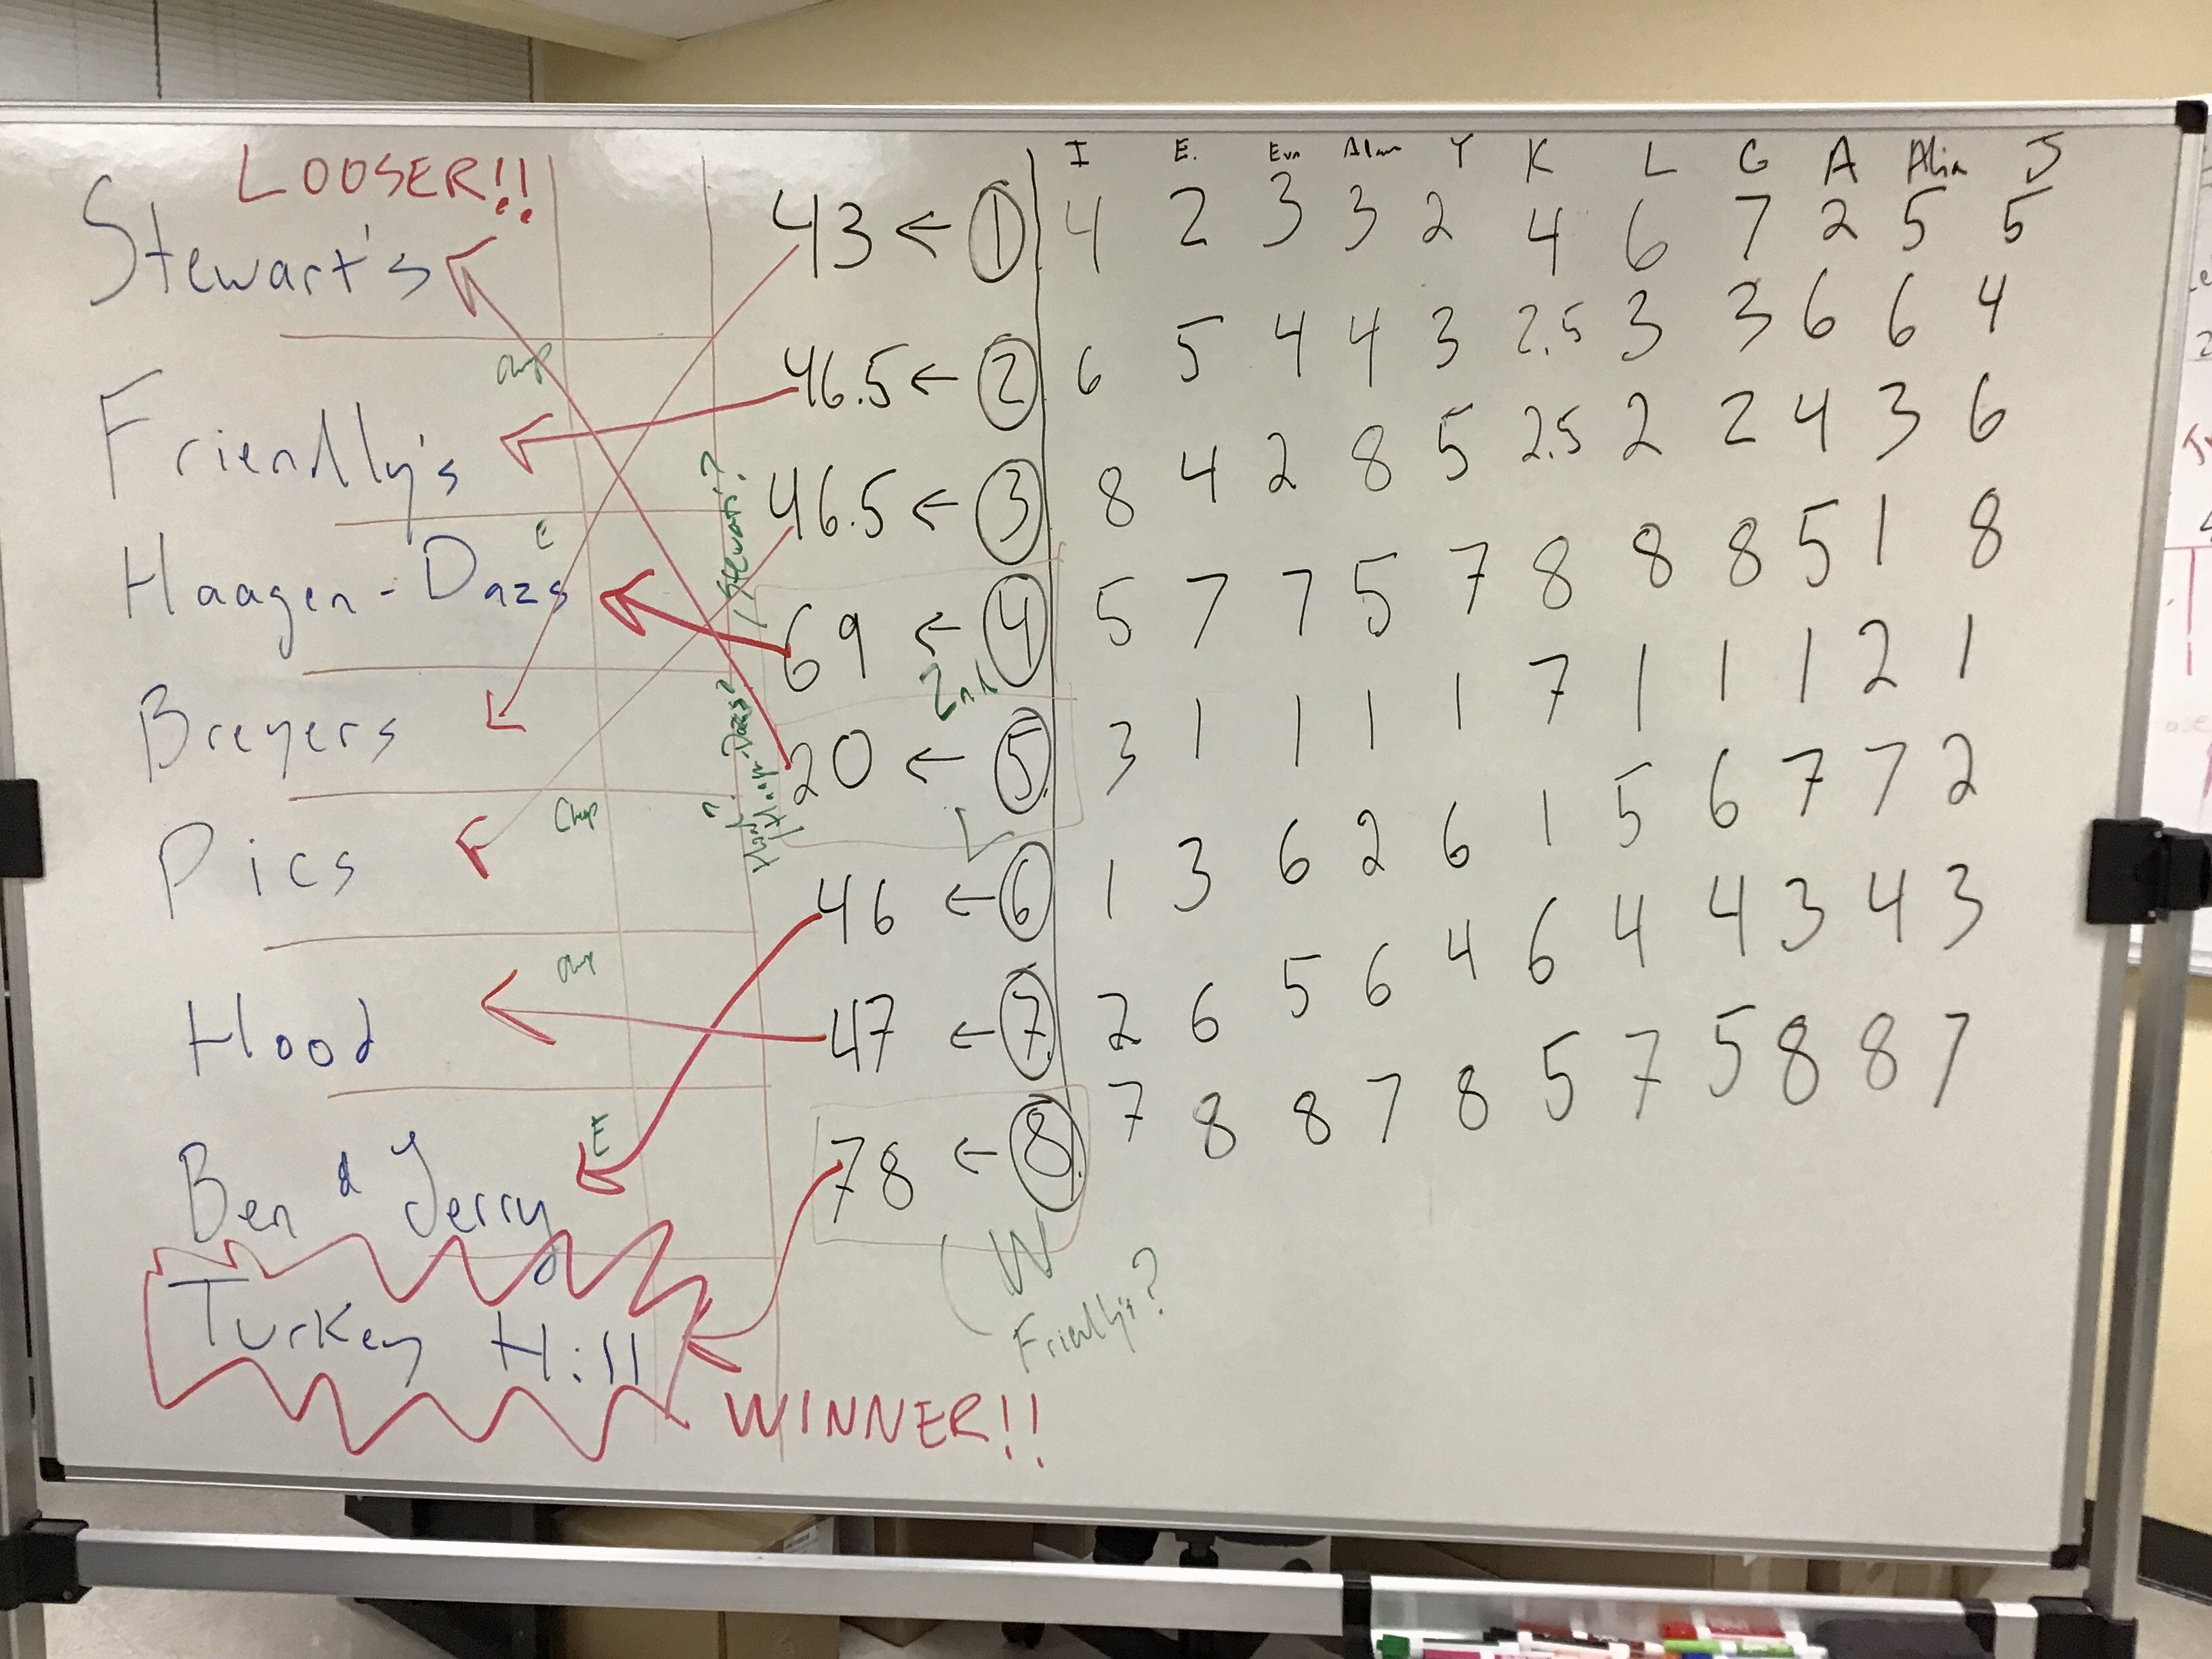 LOOSER!!
I E. Evn Alan Y K L G A Alia J
Stewart's 43 ← 1 4 2 3 3 2 4 6 7 2 5 5
Friendly's 46.5 ← 2 6 5 4 4 3 2.5 3 3 6 6 4
Stewart's?
46.5 ← 3 8 4 2 8 5 2.5 2 2 4 3 6
E
Haagen-Dazs 69 ← 4 5 7 7 5 7 8 8 8 5 1 8
2nd
Breyers 20 ← 5. 3 1 1 1 1 7 1 1 1 2 1
Haagen-Dazs?
Hood?
Chp
L
Pics 46 ← 6 1 3 6 2 6 1 5 6 7 7 2
Hood 47 ← 7. 2 6 5 6 4 6 4 4 3 4 3
E
Ben & Jerry 78 ← 8. 7 8 8 7 8 5 7 5 8 8 7
W
Friendly's?
Turkey Hill
WINNER!!